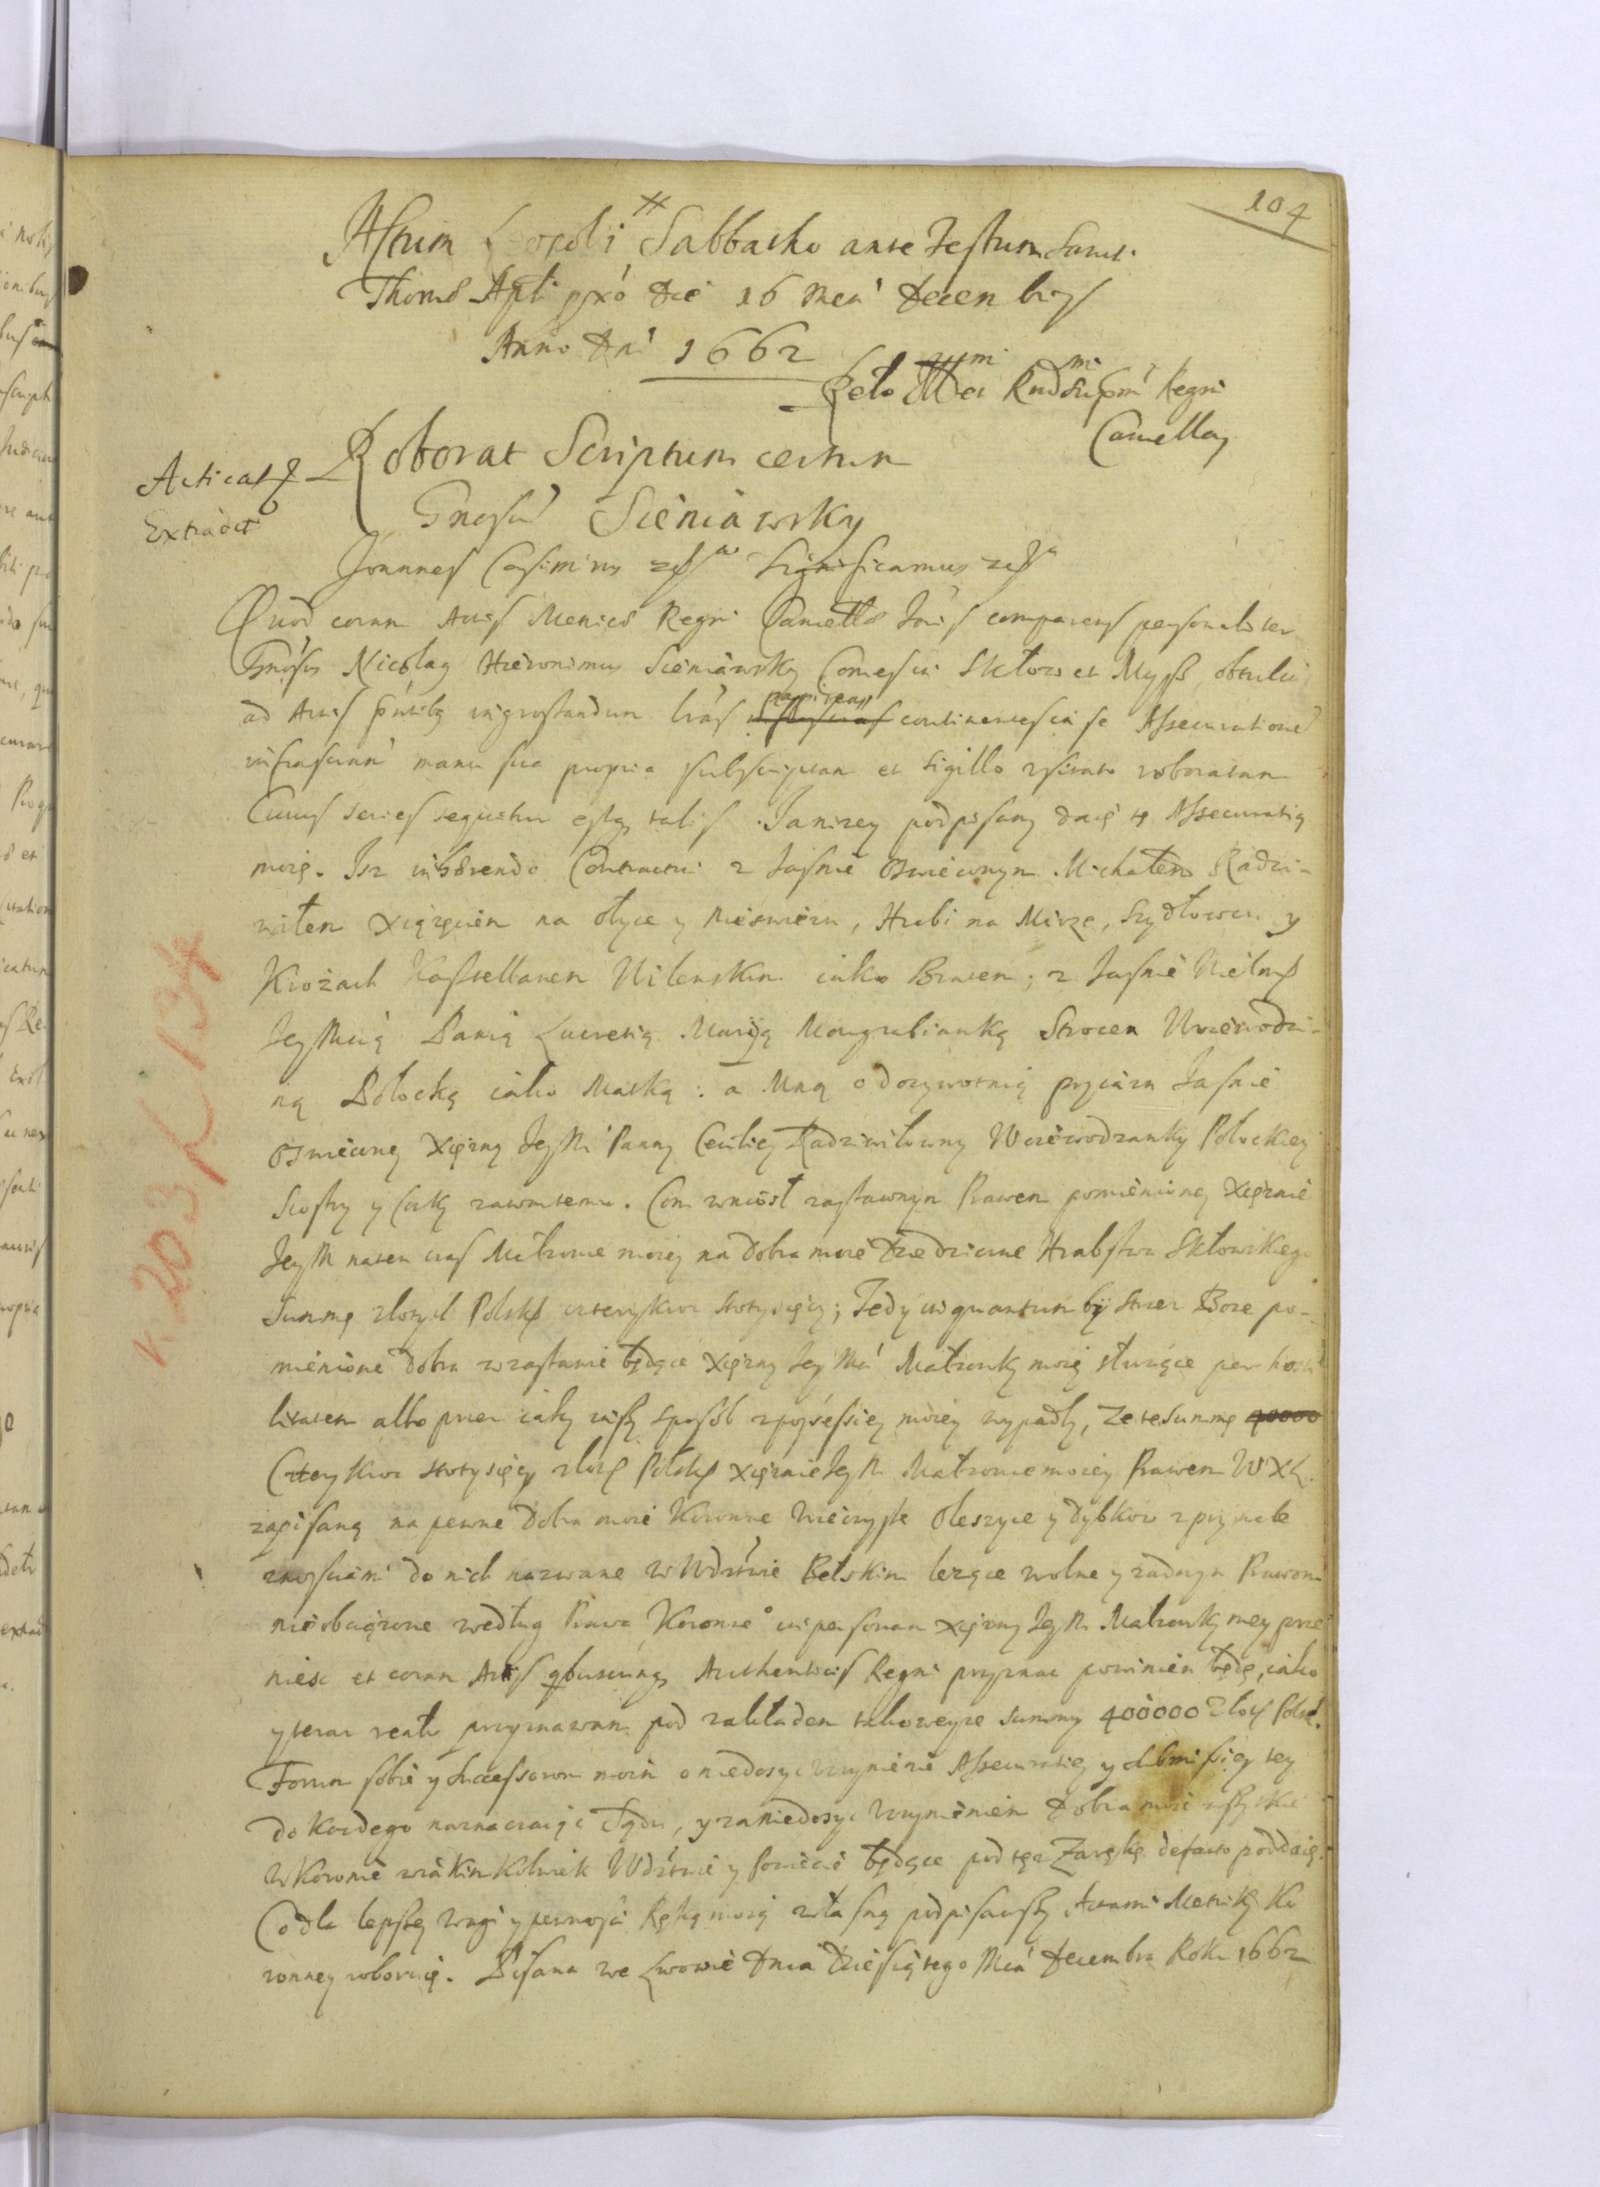 104
Actum Leopoli Sabbatho ante Festum Sancti
Thomæ Apli pxo die 16 Men' Decembris
Anno Dni 1662
Rndi Regni
Cancellar
Acticat
Extradet
Roborat Scriptum certum
Gnosus Sieniawsky
Joannes Casimirus Significamus
Quod coram Actis Metrices Regni Cancellæ comparens personaliter
Gnosus Nicolaus Hieronimus Sieniawsky Comes in Skłow et Mysz obtulit
ad Actis pntibq ingrossandum lras papireas continentes in se Assecurationem
infrascriptam manu sua propria subscriptam et sigillo roboratam
Cuius series sequitur estq talis. Ja nizey podpisany daię tę Assecuratią
moię. Isz Contractu z Jasnie Oswieconym Michałem Radzi-
wiłem Xiążęciem na Ołyce y Nieswieżu, Hrabi na Mirze, Szydłowcu y
Krożach Kasztellanem Wilenskim iako Bratem; z Jasnie Wielmo
Jey Mcią Panią Lucretią Marią Wojewodzi-
ną Połocką iako Matką: a Mną o dozywotnią przyiazn Jasnie
Oswieconey Xiężny Jey M Panny Ceciliey Radziwiłowny Woiewodzanky Połockiey
Siostry y Corky zawartemu. Com wniosł zastawnym Prawem pomienioney Xiężnie
Jey M na ten czas Małzonce moiey na dobra moie Dziedziczne Hrabstwo Skłowskiego
Summę złotych Polsk czterykroc stotysięcy; Tedy inquantum by strzez Boze po-
mienione Dobra w zastawie będące Xiężny Jey Mci Małzonky moiey służące per hosti
litatem albo przez iaky inszy sposob z possessiey moiey wypadły, Ze te Summę 40000
Czterykroc stotysięcy złot Polsk Xiężnie Jey M Małzonce moiey Prawem W X L
zapisaną na pewne dobra moie Koronne Wieczyste Oleszyce y Dybkow z przynale
znosciami do nich nazwane w Wdztwie Bełskim lezące wolne y zadnym Prawem
nieobciążone według Prawa Koronne° in personam Xiężny Jey M Małzonky mey prze
niesc et coram Actis quibuscunq Authenticis Regni przyznac powinien będę, iako
y teraz realr przyznawam pod zakładem takoweyze summy 400000 Złot Polsk.
Forum sobie y Successorom moim o niedosyc uczynienie Assecuratiey y submissiey tey
do kozdego naznaczaiąc Sądu, y za niedosyc uczynieniem Dobra moie wszytkie
W Koronie w iakim kolwiek Wdztwie y Powiecie będące pod tęz Zarękę de facto poddaię.
Co dla lepszey wagi y pewnosci Ręką moią własną podpisawszy Actami Metriky Ko
ronney roboruię. Pisana we Lwowie Dnia Dziesiątego Mca Decembra Roku 1662